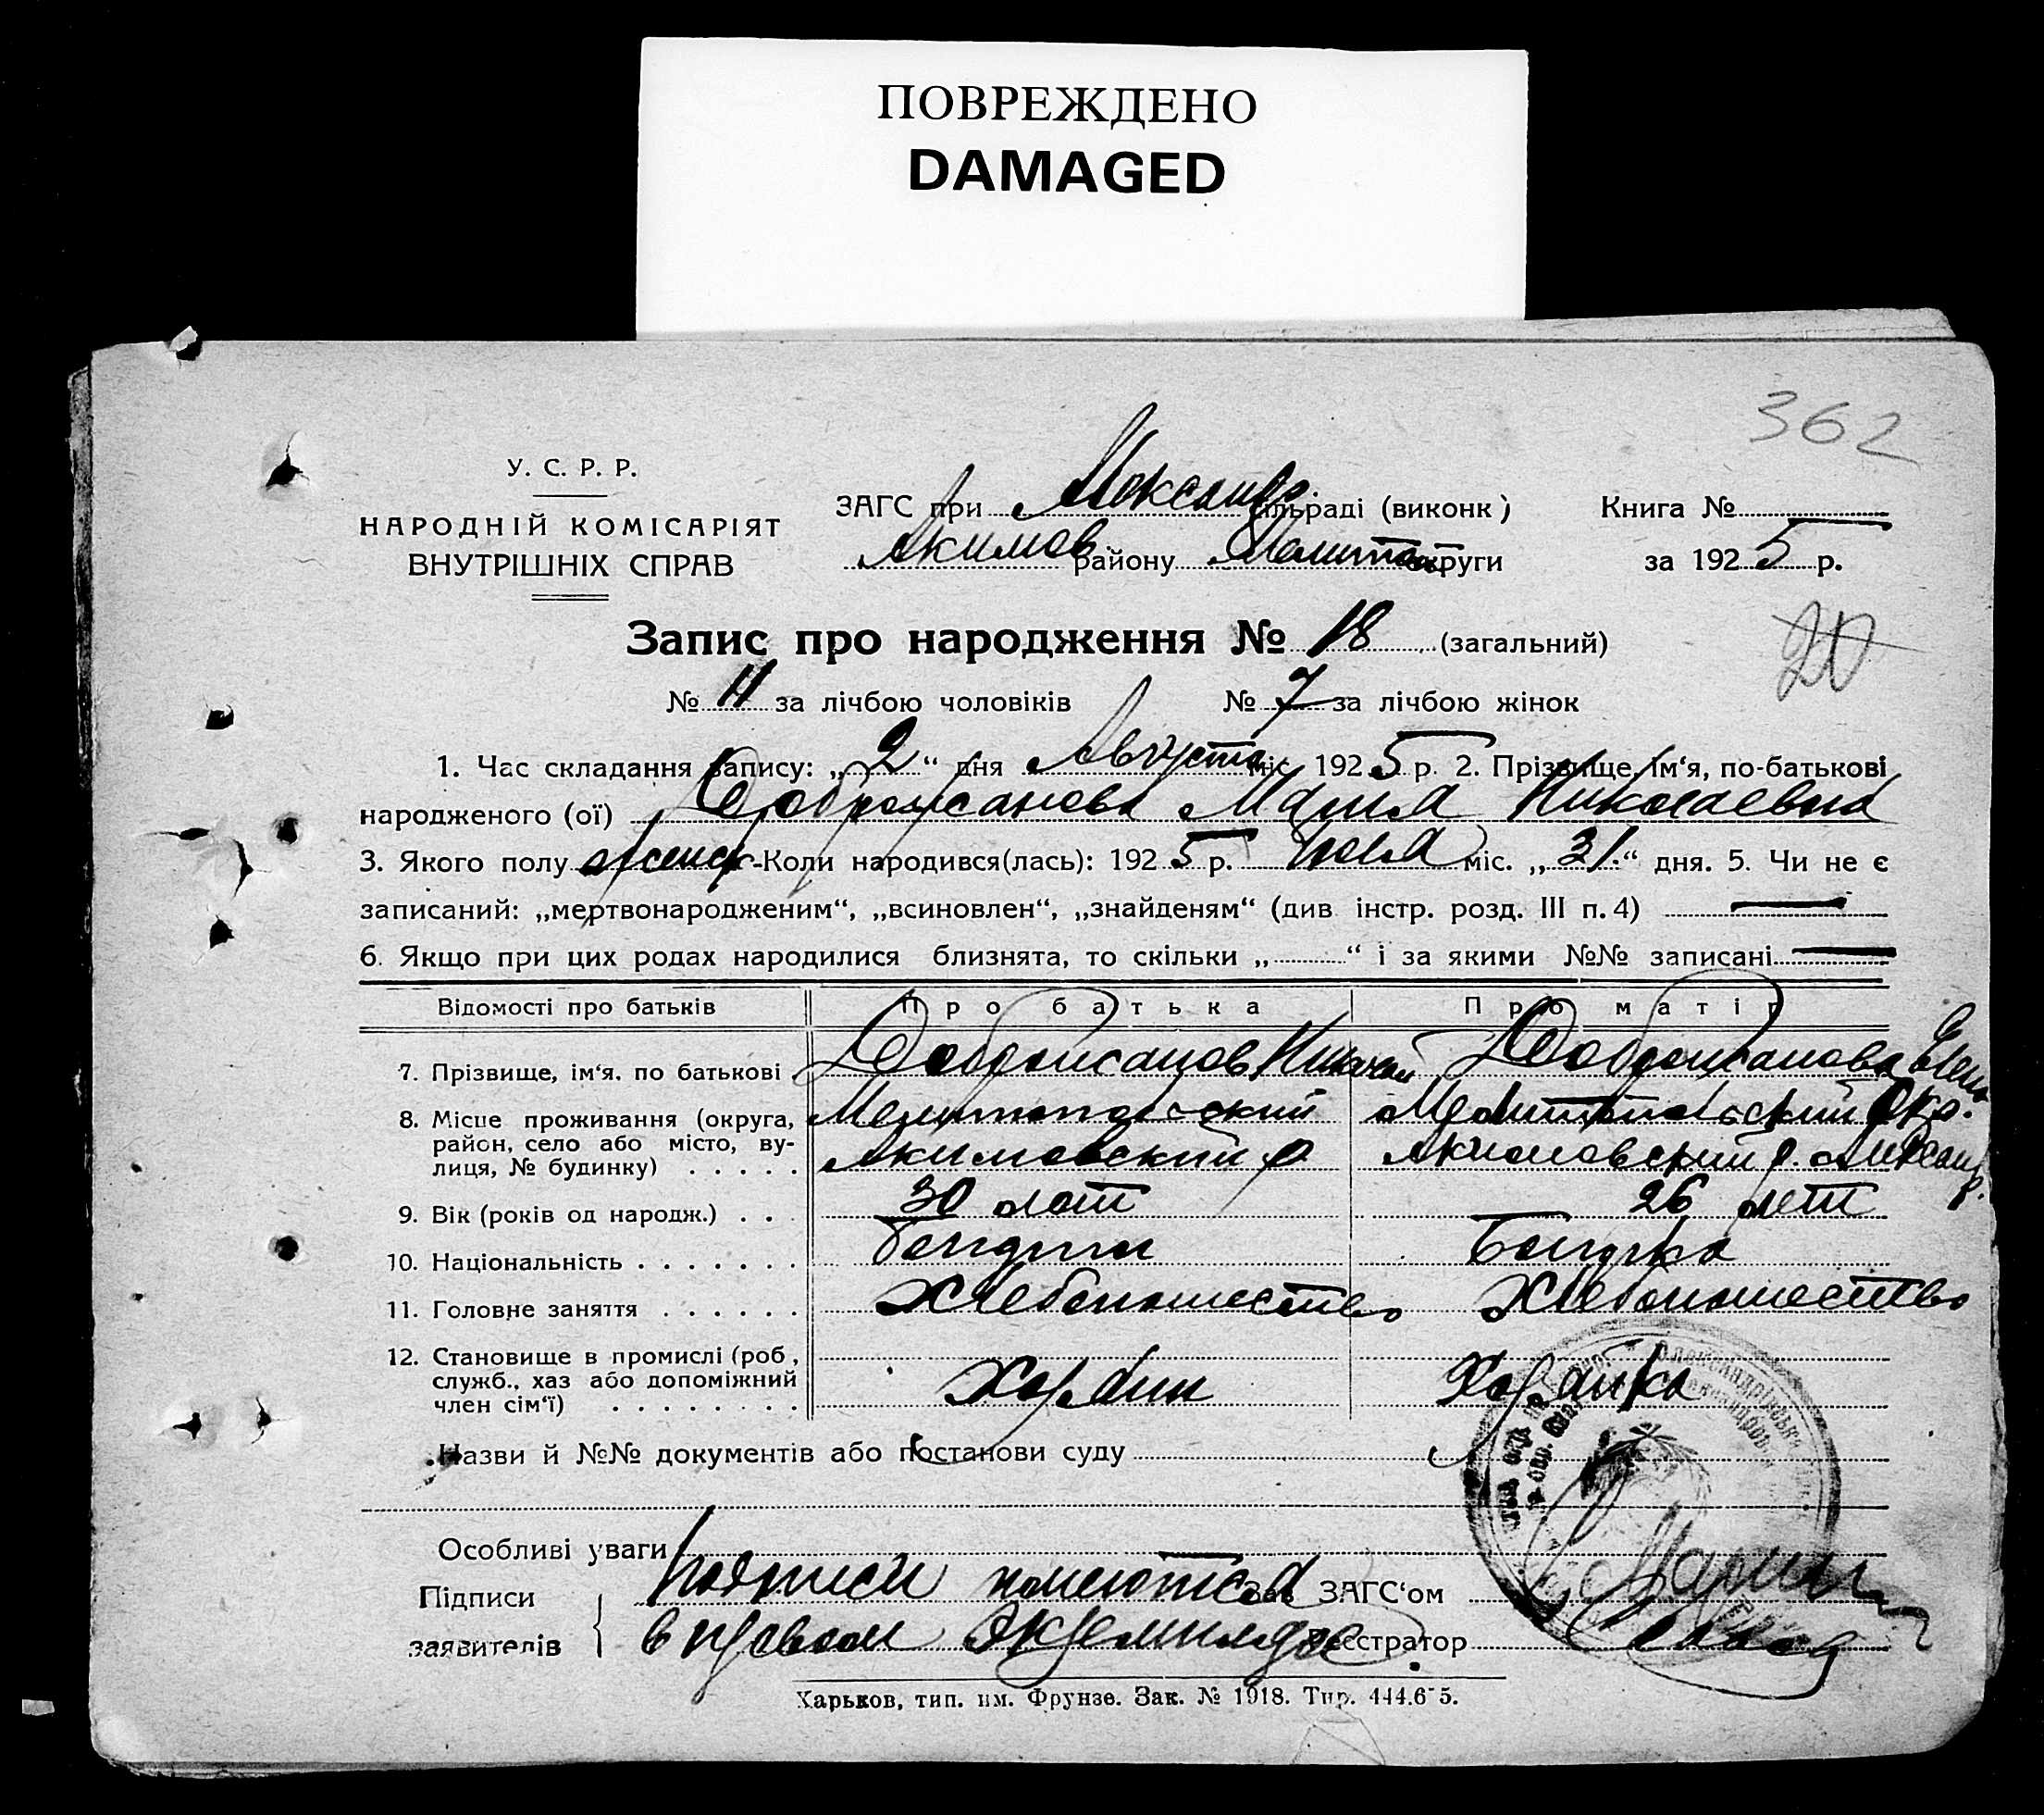 ПОВРЕЖДЕНО
DAMAGED
362
У. С. Р. Р.
НАРОДНІЙ КОМІСАРІЯТ
ВНУТРІШНІХ СПРАВ
ЗАГС при Александр. сільраді (виконк)
Акимов. району Мелитоп округи
Книга №
за 1925 р.
Запис про народження № 18 (загальний)
20
№ 11 за лічбою чоловіків № 7 за лічбою жінок
1. Час складання запису: „2“ дня Августа міс. 1925 р. 2. Прізвище, ім‘я, по-батькові
народженого (ої) Мария Николаевна
3. Якого полу женск Коли народився(лась): 1925 р. Июля міс. „31“ дня. 5. Чи не є
записаний: „мертвонародженим“, „всиновлен“, „знайденям“ (див інстр. розд. III п. 4) —
6. Якщо при цих родах народилися близнята, то скільки „ “ і за якими №№ записані —
Відомості про батьків Про батька Про матір
7. Прізвище, ім‘я, по батькові Николай Елена
8. Місце проживання (округа, Мелитопольский Мелитопольский Окр.
район, село або місто, ву- Акимовский р Акимовский р. Александр.
лиця, № будинку)
9. Вік (років од народж.) 30 лет 26 лет
10. Національність
11. Головне заняття Хлебопашество Хлебопашество
12. Становище в промислі (роб,
служб., хаз або допоміжний Хозяин Хозяйка
член сім‘ї)
Назви й №№ документів або постанови суду
Особливі уваги
Підписи Подписи имеются Зав ЗАГС‘ом
заявителів в первом экземпляре. Реєстратор
Харьков, тип. им. Фрунзе. Зак. № 1918. Тир. 444.6 5.